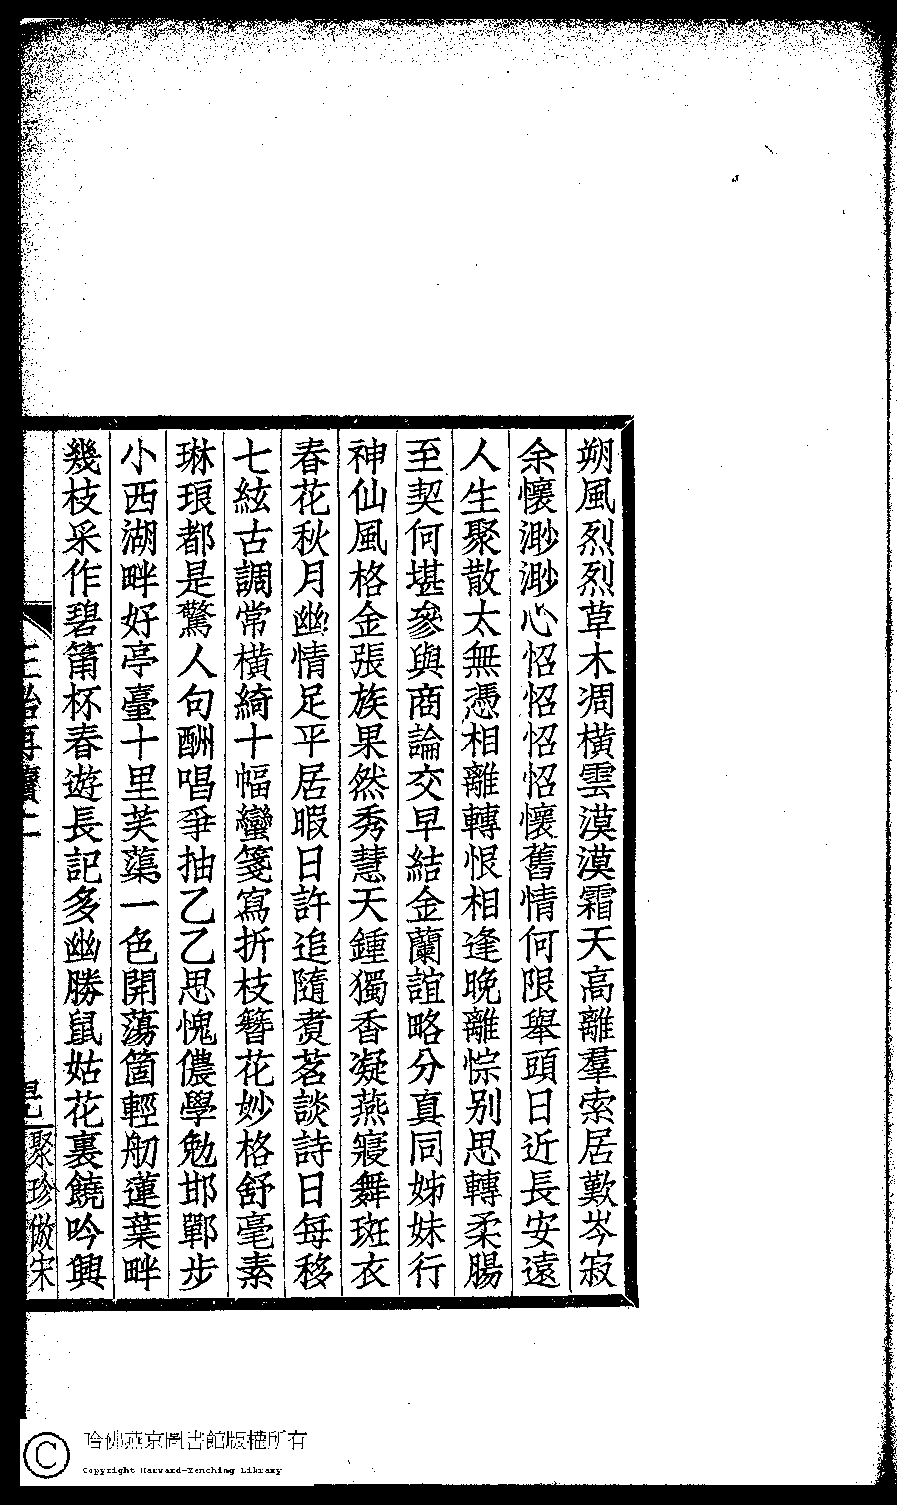 朔風烈烈草木凋橫雲漠漠霜天高離羣索居歎岑寂
余懷渺渺心怊怊怊怊懷舊情何限舉頭日近長安遠
人生聚散太無憑相離轉恨相逢晚離悰别思轉柔腸
至契何堪參與商論交早結金蘭誼略分真同姊妹行
神仙風格金張族果然秀慧天鍾獨香凝燕寢舞斑衣
春花秋月幽情足平居暇日許追隨煑茗談詩日每移
七絃古調常橫綺十幅蠻箋寫折枝簪花妙格舒毫素
琳琅都是驚人句酬唱爭抽乙乙思愧儂學勉邯鄲步
小西湖畔好亭臺十里芙蕖一色開蕩箇輕舠蓮葉畔
幾枝采作碧筩杯春遊長記多幽勝鼠姑花裏饒吟興
聚珍倣宋
哈佛燕京圖書館版權所有
Copyright Harvard-Yenching Library